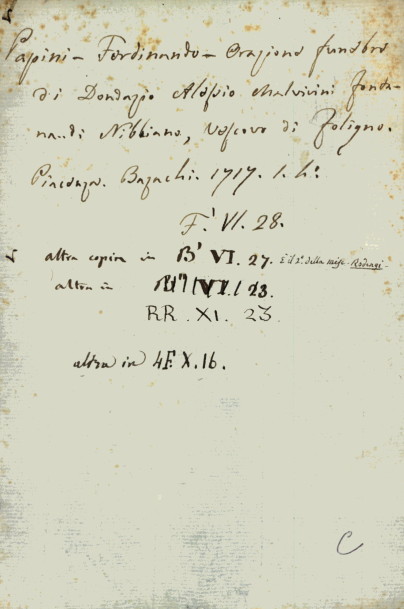 Papini - Ferdinando - Orazione funebre
di Dondazio Alessio Malvivini Fonta-
nandi Nibbiano, Vescovo di Foligno.
Piacenza. Bazachi. 1717. 1. h:
F.' VI. 28.
altra copia in B' VI. 27. È il 2.° della misc.
altra in VI. 23.
RR. XI. 23
altra in 4F. X. 16.
C